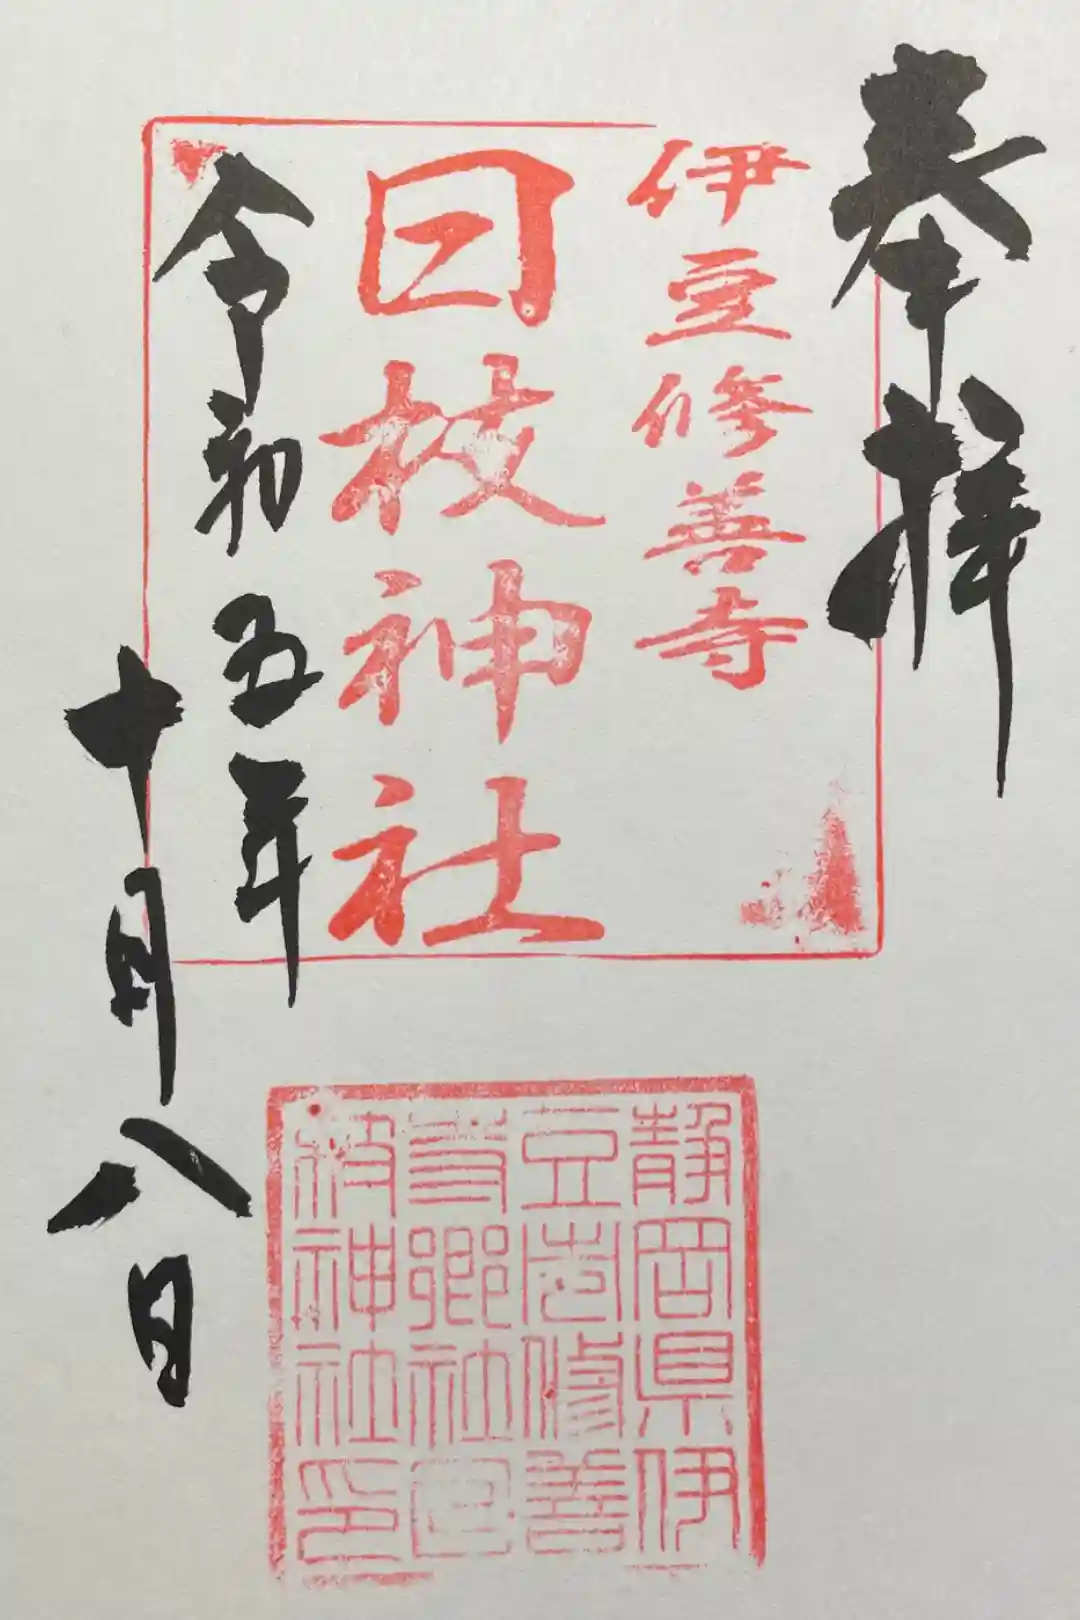 奉拝
伊豆修善寺
日枝神社
令和五年
十月八日
静岡県伊
豆市修善
寺郷社日
枝神社印